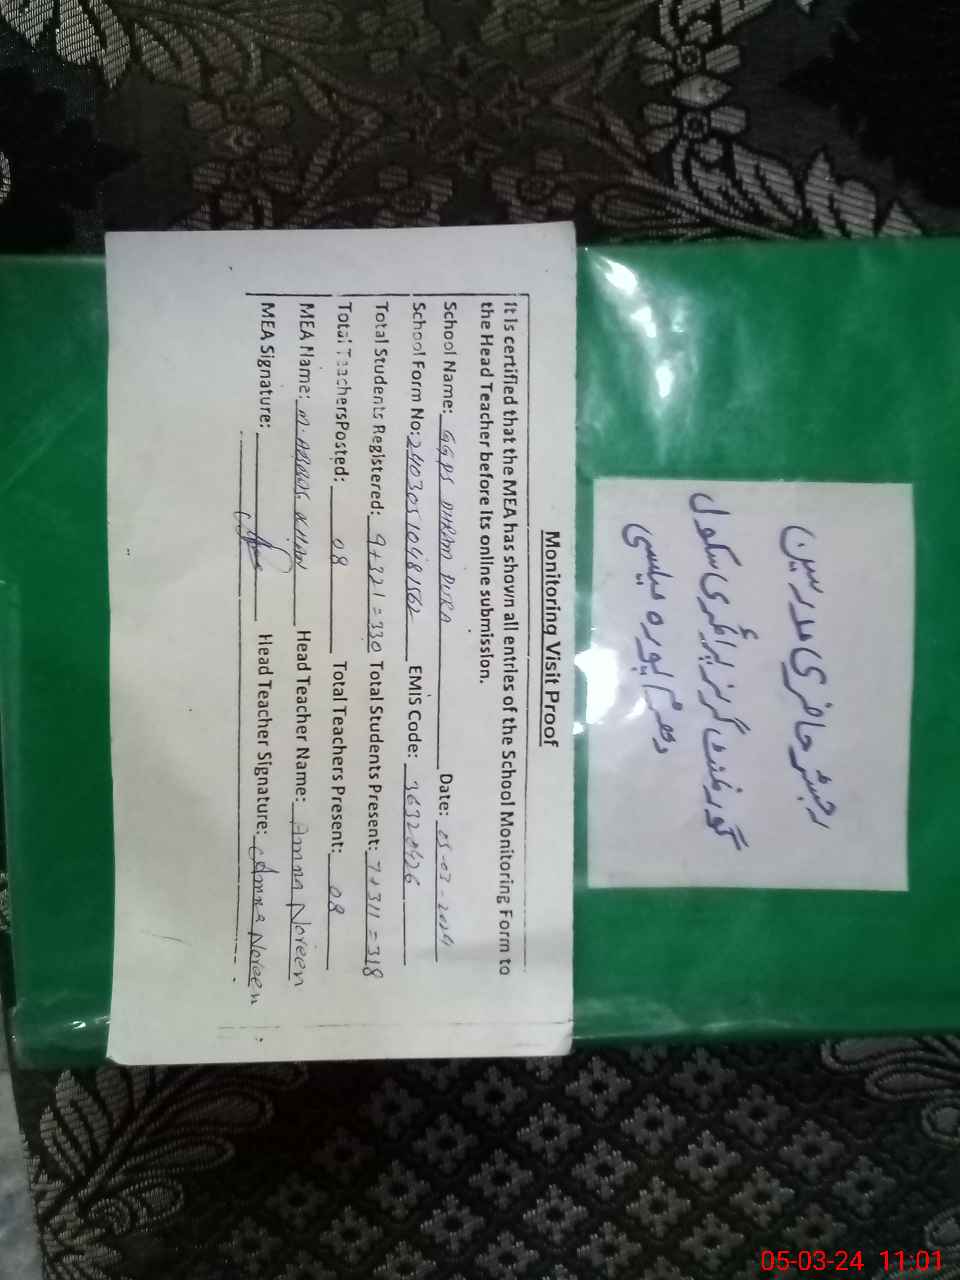 رجسٹر حاضری مدرسین
گورنمنٹ گرلز پرائمری سکول
دھرم پورہ میلسی
Monitoring Visit Proof
It is certified that the MEA has shown all entries of the School Monitoring Form to
the Head Teacher before its online submission.
School Name: GGPS DHRAM PURA Date: 05-03-2024
School Form No: EMIS Code:
Total Students Registered: 9+321=330 Total Students Present: 7+311=318
Total Teachers Posted: 08 Total Teachers Present: 08
MEA Name: M. ABBAS KHAN Head Teacher Name: Amna Noreen
MEA Signature: Head Teacher Signature: Amna Noreen
05-03-24 11:01